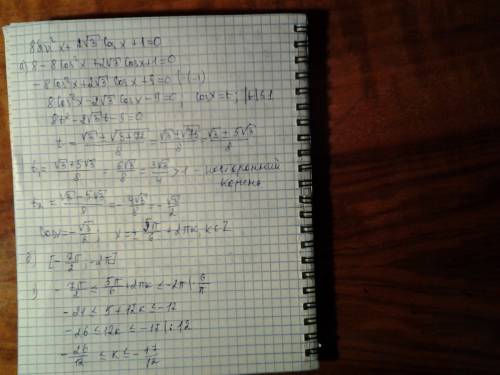 8sin²x + 2√3 cosx + 1 = 0
а) 8 - 8cos²x + 2√3 cosx + 1 = 0
-8cos²x + 2√3 cosx + 9 = 0 |·(-1)
8cos²x - 2√3 cosx - 9 = 0; cosx = t, |t| ≤ 1
8t² - 2√3t - 9 = 0
t = (√3 ± √(3+72))/8 = (√3 ± √75)/8 = (√3 ± 5√3)/8
t₁ = (√3+5√3)/8 = 6√3/8 = 3√3/4 > 1 - посторонний корень
t₂ = (√3-5√3)/8 = -4√3/8 = -√3/2
cosx = -√3/2; x = ± 5π/6 + 2πk, k∈Z
б) [-7π/2; -2π]
1) -7π/2 ≤ 5π/6 + 2πk ≤ -2π |· 6/π
-21 ≤ 5 + 12k ≤ -12
-26 ≤ 12k ≤ -17 | : 12
-26/12 ≤ k ≤ -17/12